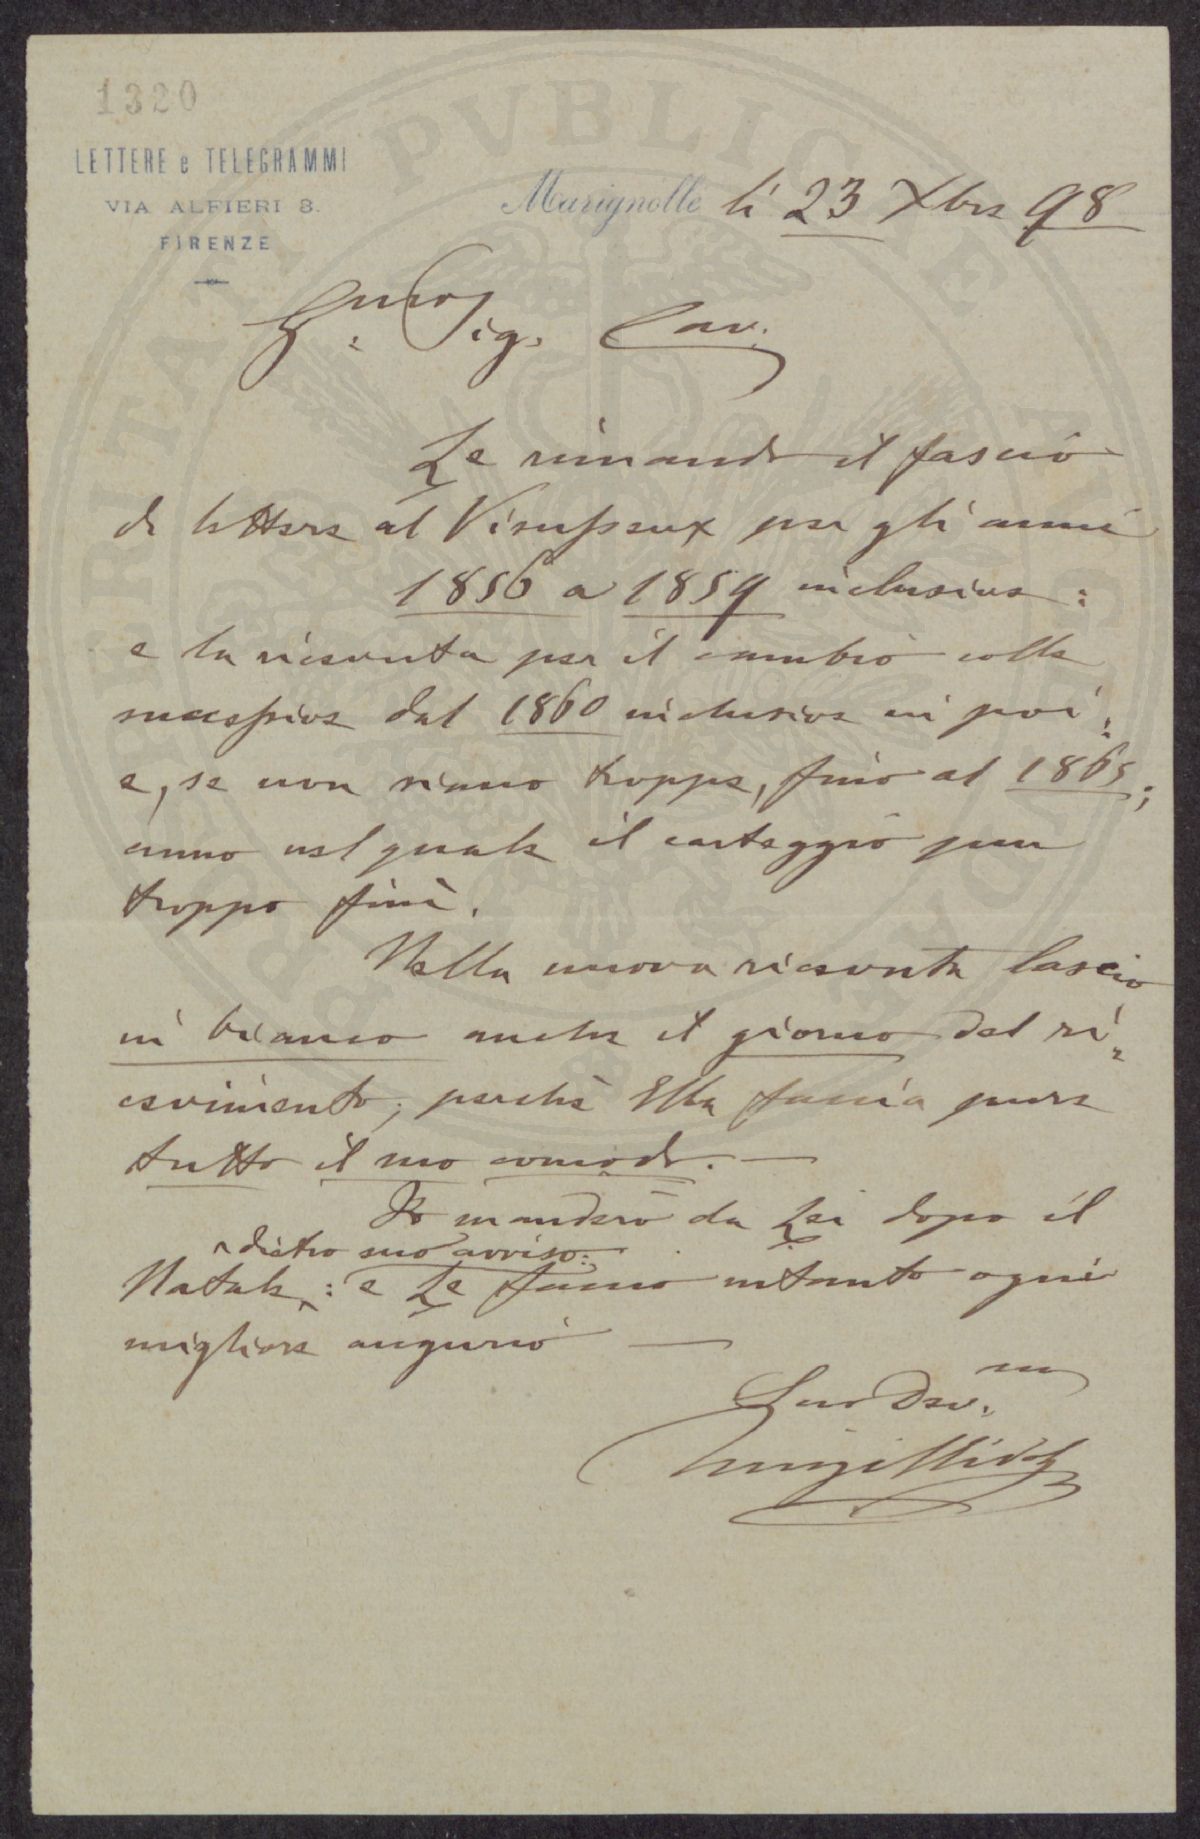 1320
LETTERE e TELEGRAMMI
VIA ALFIERI 8.
FIRENZE
Marignolle li 23 Xbre 98
G.mo Sig. Cav.
Le rimando il fascio
di lettere al Vieusseux per gli anni
1856 a 1859 inclusive:
e la ricevuta per il cambio colle
successive dal 1860 inclusive in poi:
e, se non siano troppe, fino al 1865;
anno nel quale il carteggio pur
troppo finì.
Nella nuova ricevuta lascio
in bianco anche il giorno del ri=
cevimento; perchè Ella faccia pure
tutto il suo comodo. —
Io manderò da Lei dopo il
dietro suo avviso:
Natale: e Le faccio intanto ogni
migliore augurio —
Suo Dev.mo
Luigi